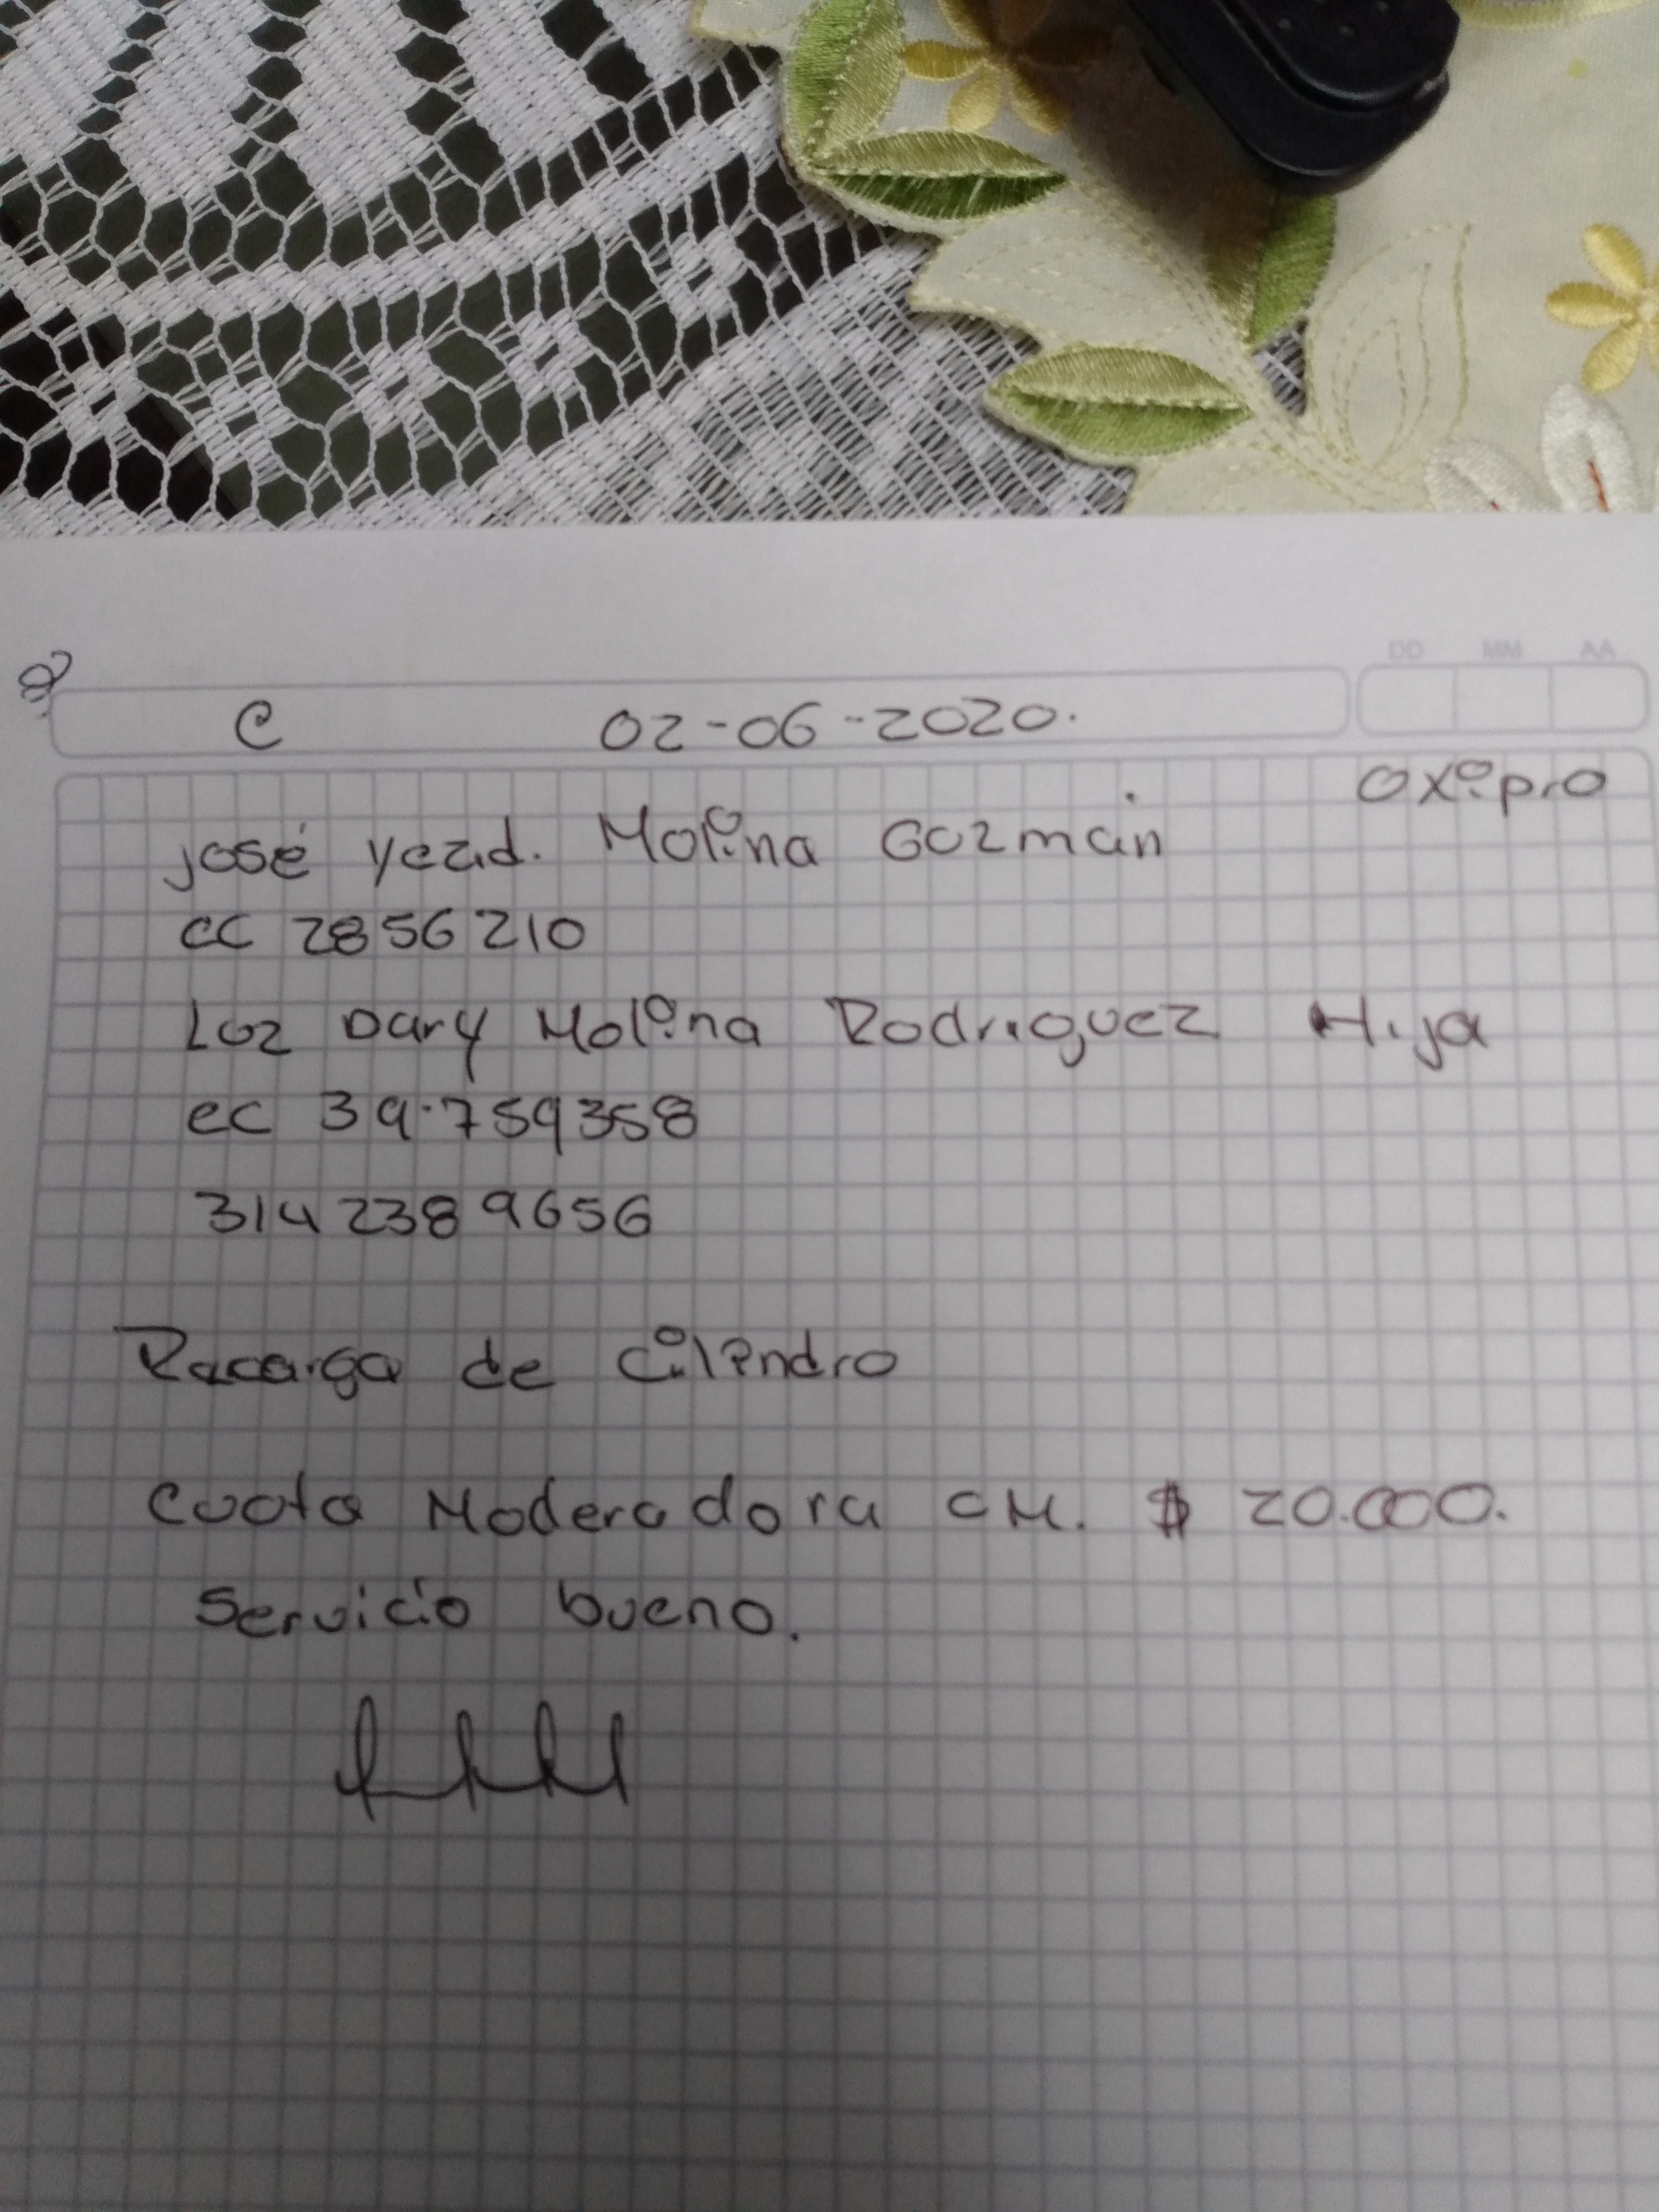 DD MM AA
C 02-06-2020.
Oxipro
José Yezid. Molina Guzmán
CC 2856210
Luz Dary Molina Rodriguez Hija
CC 39.759358
314 238 9656
Recarga de Cilindro
Cuota Moderadora CM. $ 20.000.
Servicio bueno.